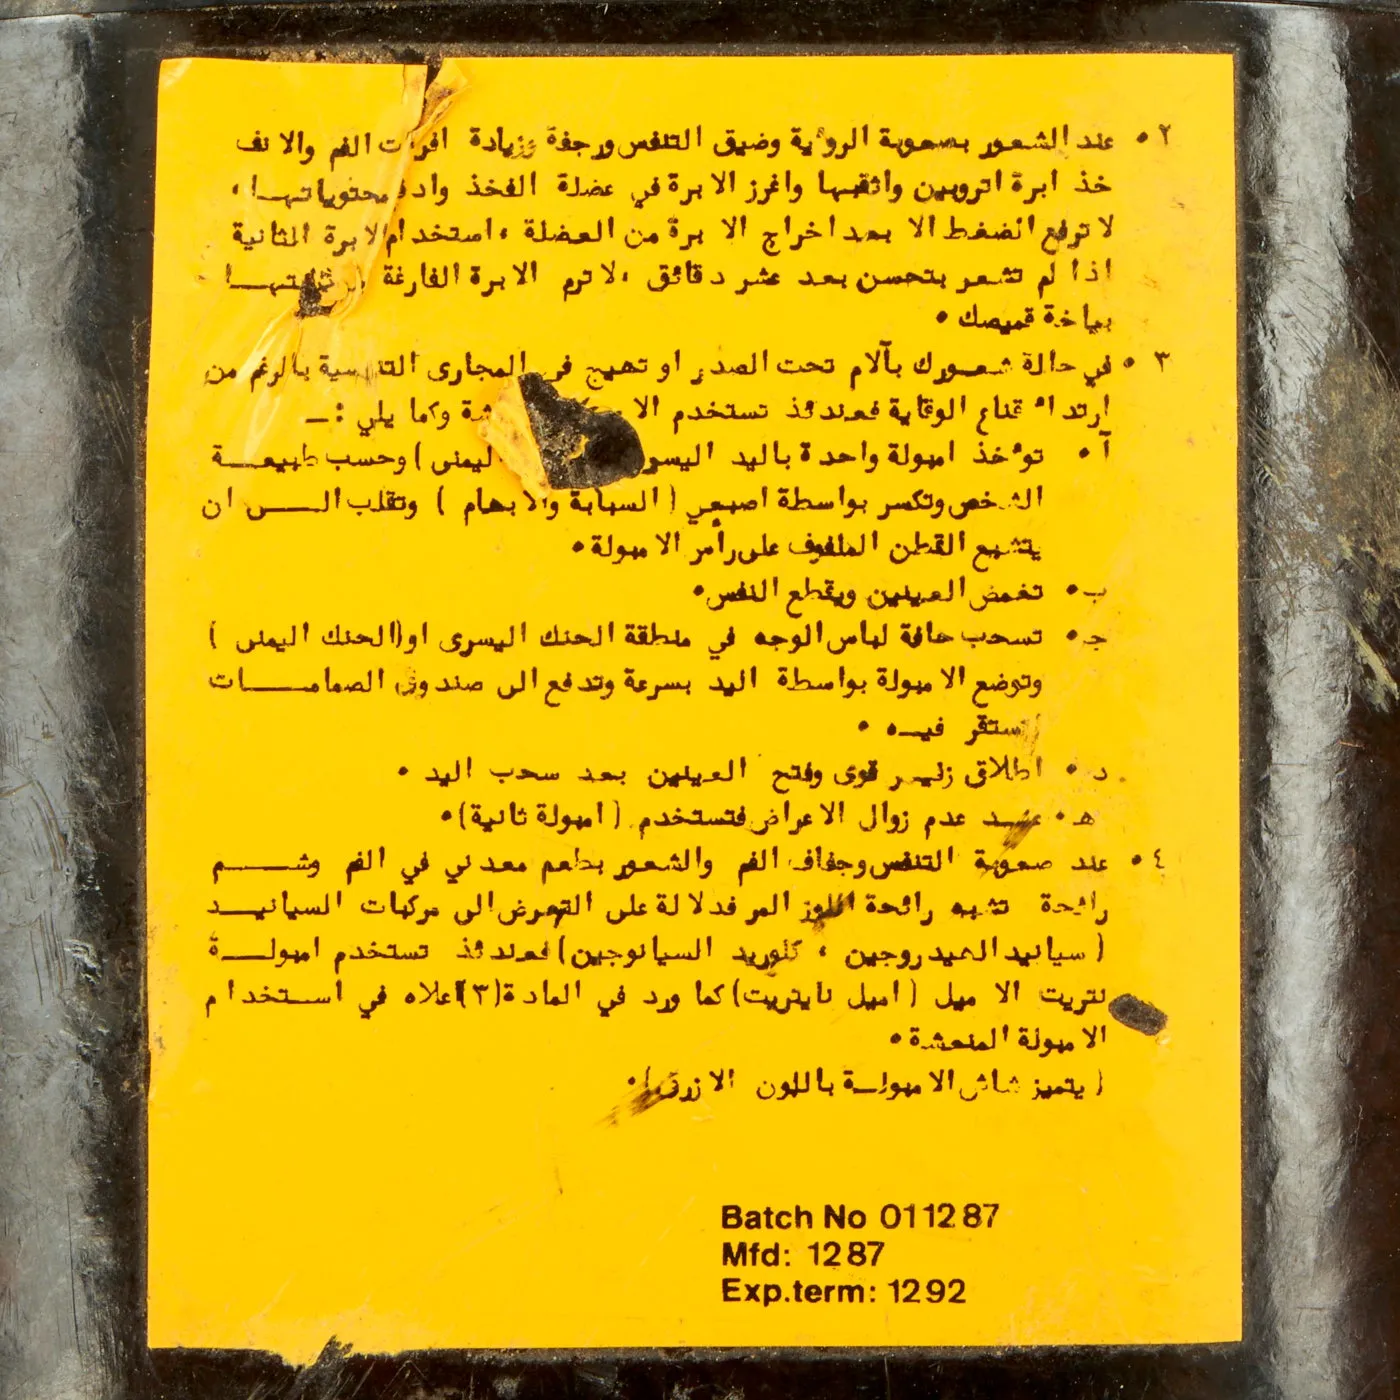 ٢ • عند الشعور بصعوبة الروءية وضيق التنفس ورجفة وزيادة افرازات الفم والانف
خذ ابرة اتروبين واثقبها واغرز الابرة في عضلة الفخذ وادفع محتوياتها •
لا ترفع الضغط الا بعد اخراج الابرة من العضلة ، استخدام الابرة الثانية
اذا لم تشعر بتحسن بعد عشر دقائق ، لا ترم الابرة الفارغة
بياخة قميصك •
٣ • في حالة شعورك بآلام تحت الصدر او تهيج في المجارى التنفسية بالرغم من
ارتداء قناع الوقاية فعندئذ تستخدم وكما يلي :ــ
آ • توءخذ امبولة واحدة باليد اليسرى اليمنى ) وحسب طبيعـــة
الشخص وتكسر بواسطة اصبعي ( السبابة والابهام ) وتقلب الــــى ان
يتشبع القطن الملفوف على رأس الامبولة •
ب • تغمض العينين ويقطع النفس •
جـ • تسحب حافة لباس الوجه في منطقة الحنك اليسرى او (الحنك اليمنى )
وتوضع الامبولة بواسطة اليد بسرعة وتدفع الى صندوق الصمامــــات
لتستقر فيــه •
د • اطلاق زفيـر قوى وفتح العينين بعد سحب اليد •
هـ • عنــد عدم زوال الاعراض فتستخدم ( امبولة ثانية) •
٤ • عند صعوبة التنفس وجفاف الفم والشعور بطعم معدني في الفم وشــــم
رائحة تشبه رائحة اللوز المر فدلالة على التعرض الى مركبات السيانيــد
( سيانيد الهيدروجين ، كلوريد السيانوجين) فعندئذ تستخدم امبولـــة
نتريت الاميل ( اميل نايتريت) كما ورد في المادة (٣) اعلاه في استخدام
الامبولة المنعشة •
( يتميز شاش الامبولــة باللون الازرق) •
Batch No 011287
Mfd: 1287
Exp.term: 1292